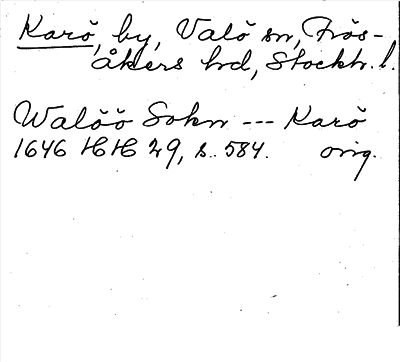 Karö, by, Valö sn, Frös-
åkers hd, Stockh. l.
Walöö Sokn --- Karö
1646 HH 29, s. 584. orig.